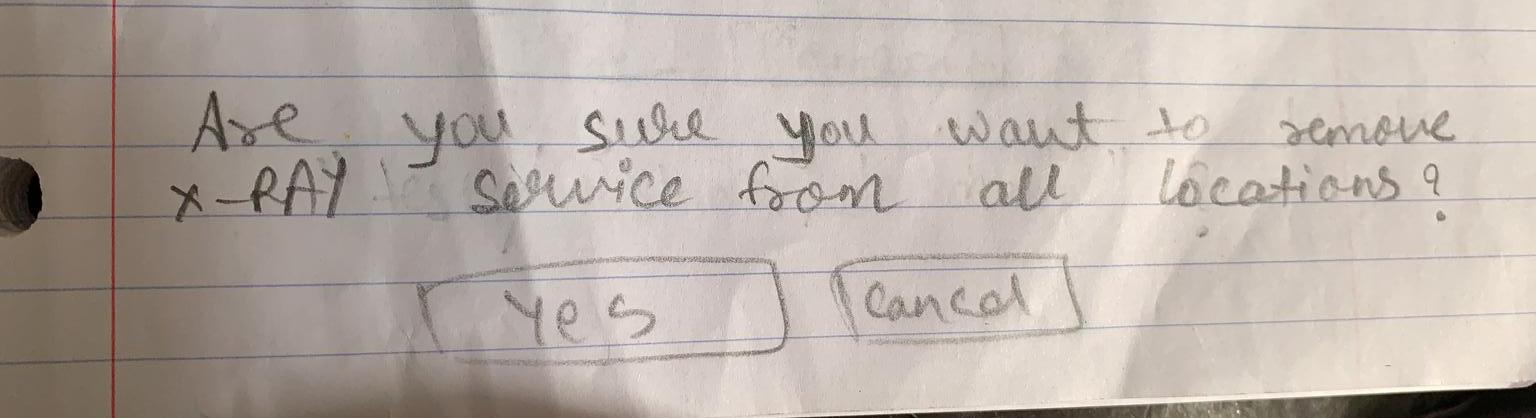 Are you sure you want to remove
X-RAY service from all locations?
Yes Cancel